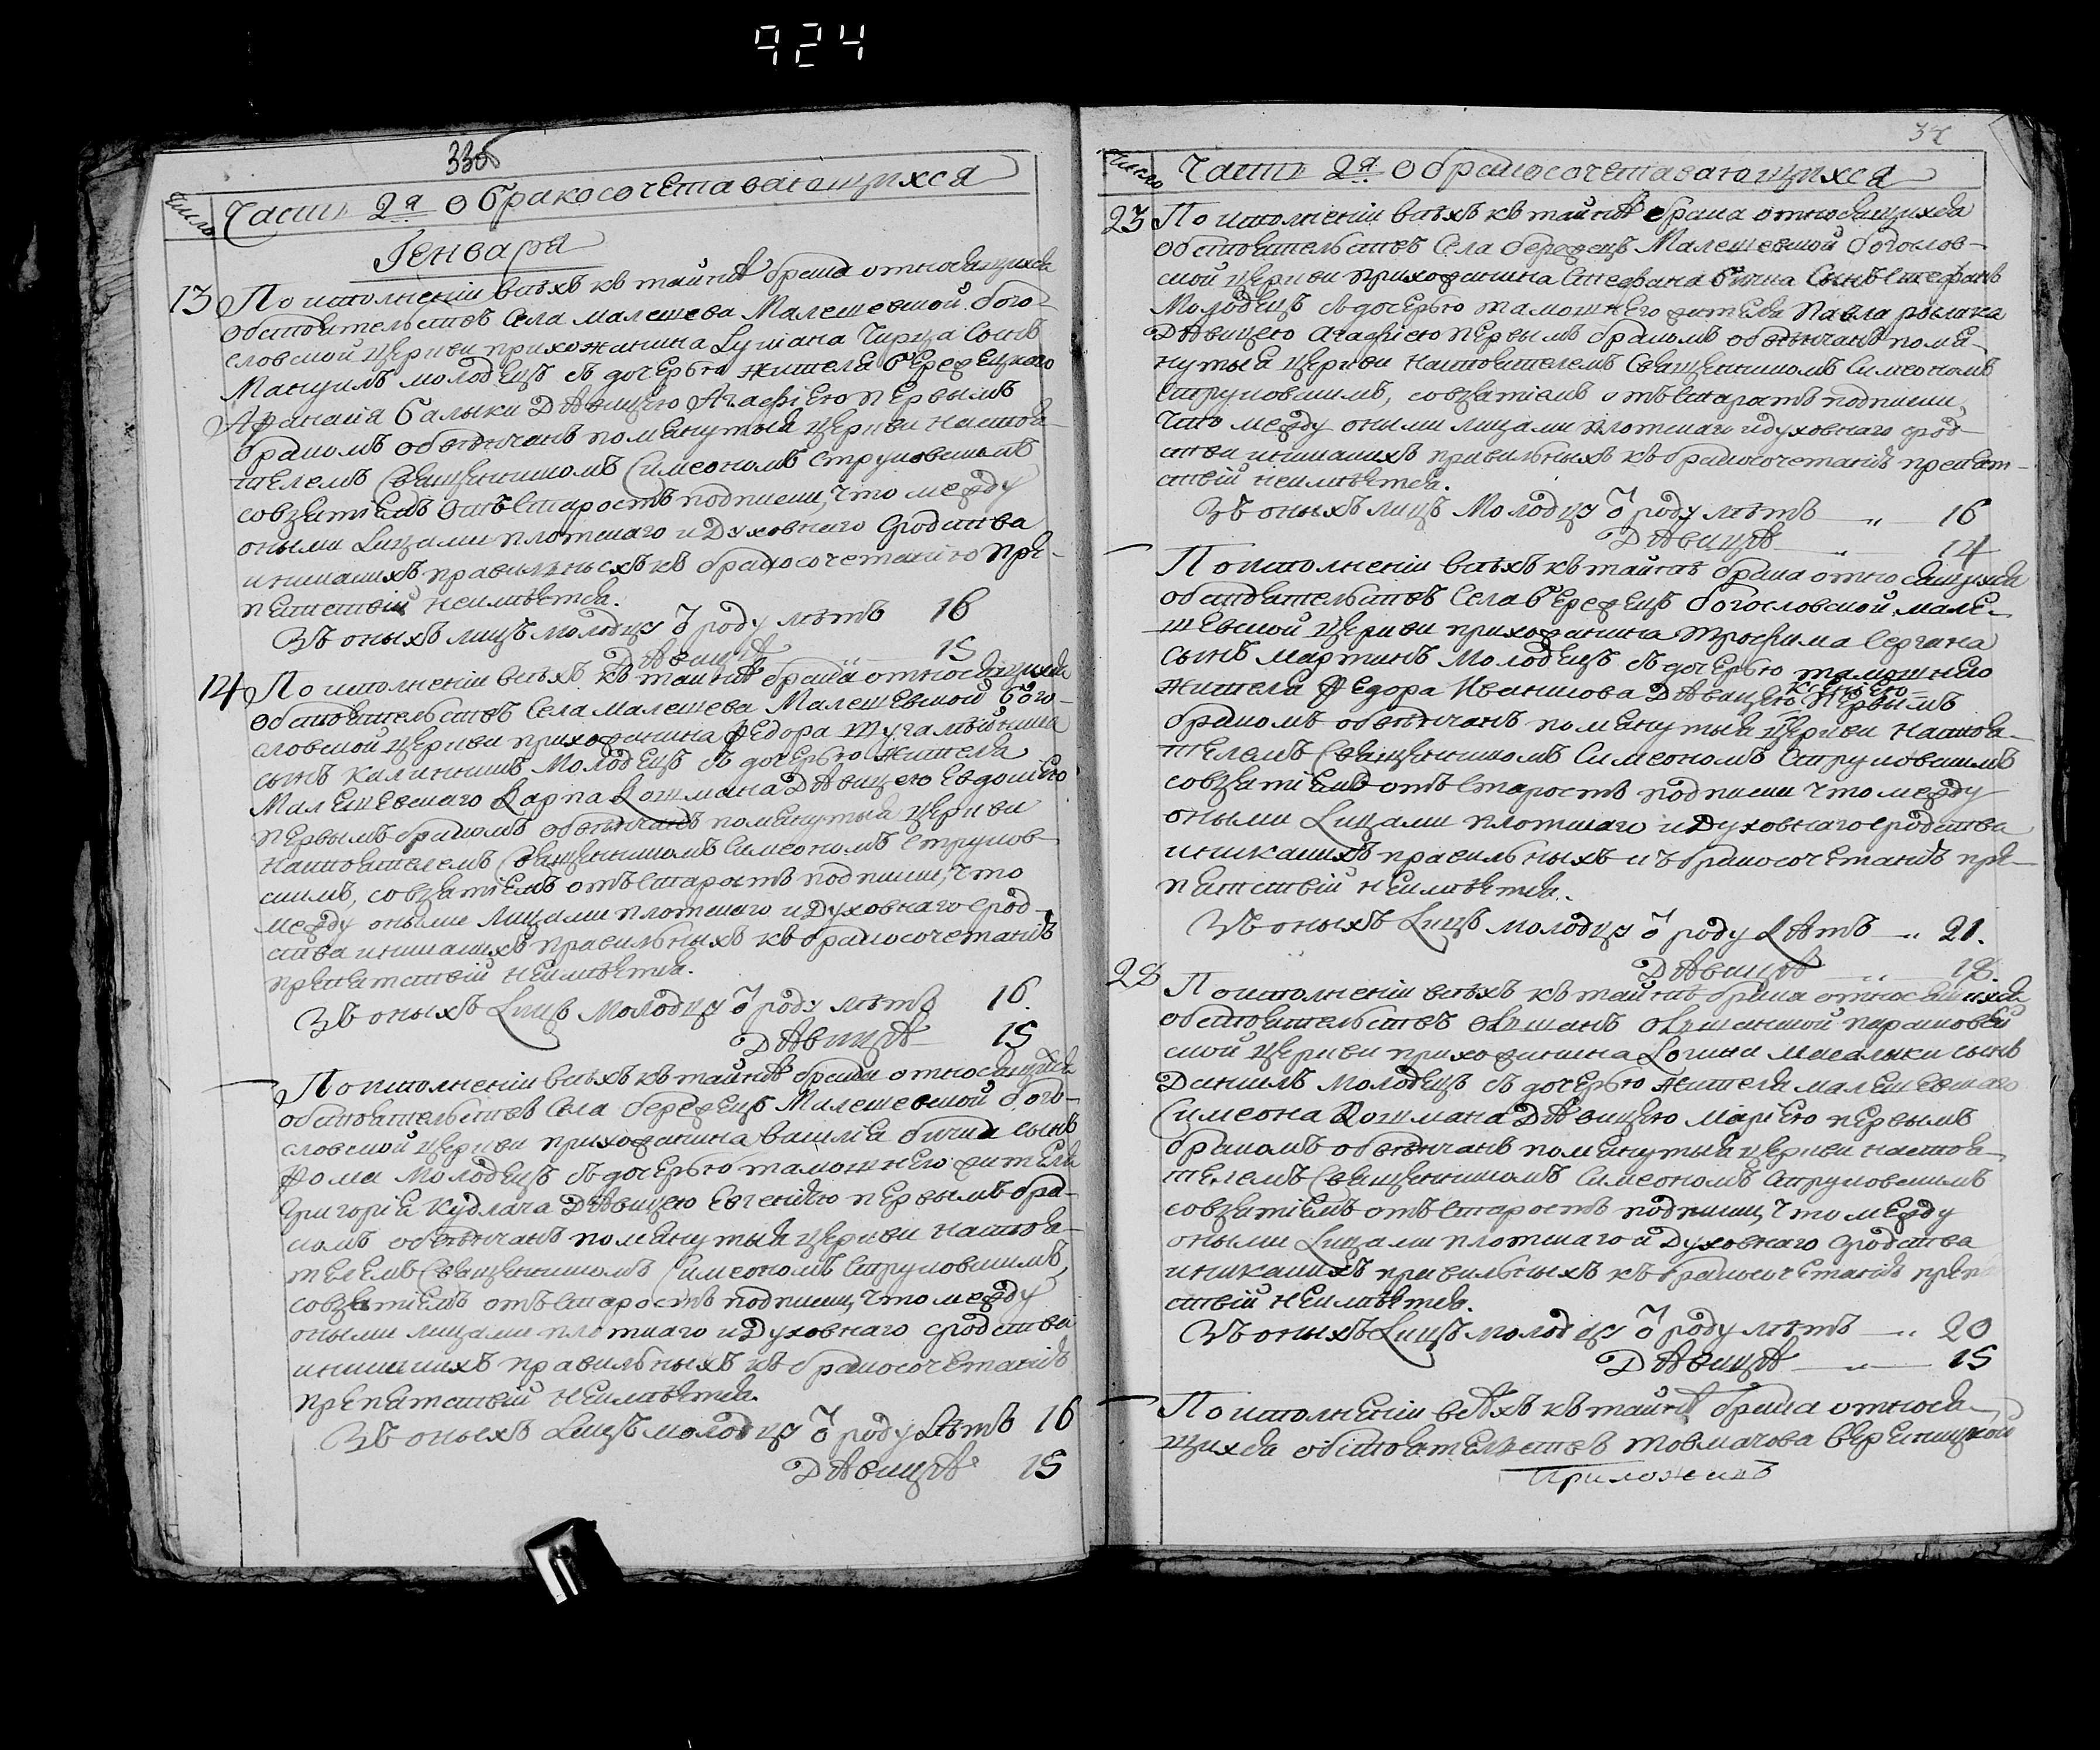 924
33об
число Часть 2я о бракосочетавающихся
Генваря
13 По исполненіи всѣхъ къ тайнѣ брака относящихся
обстоятельствъ Села малешева Малешевской бого-
словской церкви прихожанина Лукіана Чирца Сынъ
Мануилъ молодецъ съ дочерью жителя бережецкого
Афанасія балыки Дѣвицею Агафіею первымъ
бракомъ обвѣнчанъ помянутыя церкви настоя-
телемъ Священникомъ Симеономъ Струковскимъ
совзятіемъ отъ Старостъ подписки, что между
оными Лицами плотскаго и Духовнаго Сродства
иникакихъ правильныхъ къ бракосочетанію пре-
пятствій неимѣется.
Въ оныхъ лицъ молодцу ѿ роду лѣтъ 16
Дѣвицѣ 15
14 По исполненіи всѣхъ къ тайнѣ брака относящихся
обстоятельствъ Села малешева Малешевской бого-
словской церкви прихожанина Федора
сынъ Калинникъ Молодецъ съ дочерью жителя
Малешевскаго Карпа Кошмана Дѣвицею Евдокіею
первымъ бракомъ обвѣнчанъ помянутыя церкви
настоятелемъ Священникомъ Симеономъ Струков-
скимъ, совзятіемъ отъ Старостъ подписки, что
между оными Лицами плотскаго и Духовнаго срод-
ства иникакихъ правильныхъ къ бракосочетанію
препятствій неимѣется.
Въ оныхъ Лицъ Молодцу ѿ роду лѣтъ 16.
Дѣвицѣ 15
По исполненіи всѣхъ къ тайнѣ брака относящихся
обстоятельствъ Села бережецъ Малешевской бого-
словской церкви прихожанина василія бичка сынъ
Фома Молодецъ съ дочерью тамошнего жителя
Григорія Кудлача Дѣвицею Евгеніею первымъ бра-
комъ обвѣнчанъ помянутыя церкви настоя-
телемъ Священникомъ Симеономъ Струковскимъ,
совзятіемъ отъ Старостъ подписки, что между
оными лицами плотскаго и Духовнаго сродства
иникакихъ правильныхъ къ бракосочетанію
препятствій неимѣется.
Въ оныхъ Лицъ молодцу ѿ роду Лѣтъ 16
Дѣвицѣ 15
34
число Часть 2я о бракосочетавающихся
23 По исполненіи всѣхъ къ тайнѣ брака относящихся
обстоятельствъ Села бережецъ Малешевской богослов-
ской церкви прихожанина Стефана бичка Сынъ Стефанъ
Молодецъ съ дочерью тамошнего жителя Павла рослака
Дѣвицею Агафіею первымъ бракомъ обвѣнчанъ помя-
нутыя церкви настоятелемъ Священникомъ Симеономъ
Струковскимъ, совзятіемъ отъ Старостъ подписки,
что между оными лицами плотскаго и духовнаго срод-
ства иникакихъ правильныхъ къ бракосочетанію препят-
ствій неимѣется.
Въ оныхъ лицъ Молодцу ѿ роду лѣтъ — „ — 16
Дѣвицѣ — „ — 14
По исполненіи всѣхъ къ тайнѣ брака относящихся
обстоятельствъ Села бережецъ богословской мале-
шевской церкви прихожанина Трофима Сергіана
сынъ Мартинъ Молодецъ съ дочерью тамошнего
Ксеніею
жителя Федора Иванцова Дѣвицею первымъ
бракомъ обвѣнчанъ помянутыя церкви настоя-
телемъ Священникомъ Симеономъ Струковскимъ
совзятіемъ отъ Старостъ подписки что между
оными Лицами плотскаго и Духовнаго Сродства
иникакихъ правильныхъ къ бракосочетанію пре-
пятствій неимѣется.
Въ оныхъ Лицъ молодцу ѿ роду Лѣтъ — „ 21.
Дѣвицѣ — „ — 18.
28 По исполненіи всѣхъ къ тайнѣ брака относящихся
обстоятельствъ олишкань олишканской параскеев-
ской церкви прихожанина Логина Масалыки сынъ
Даніилъ Молодецъ съ дочерью жителя малешевскаго
Симеона Кошмана Дѣвицею Маріею первымъ
бракомъ обвѣнчанъ помянутыя церкви настоя-
телемъ Священникомъ Симеономъ Струковскимъ
совзятіемъ отъ Старостъ подписки, что между
оными Лицами плотскаго и Духовнаго Сродства
иникакихъ правильныхъ къ бракосочетанію препят-
ствій неимѣется.
Въ оныхъ Лицъ молодцу ѿ роду лѣтъ — „ 20
Дѣвицѣ — „ — 15
По исполненіи всѣхъ къ тайнѣ брака относя-
щихся обстоятельствъ товмачова